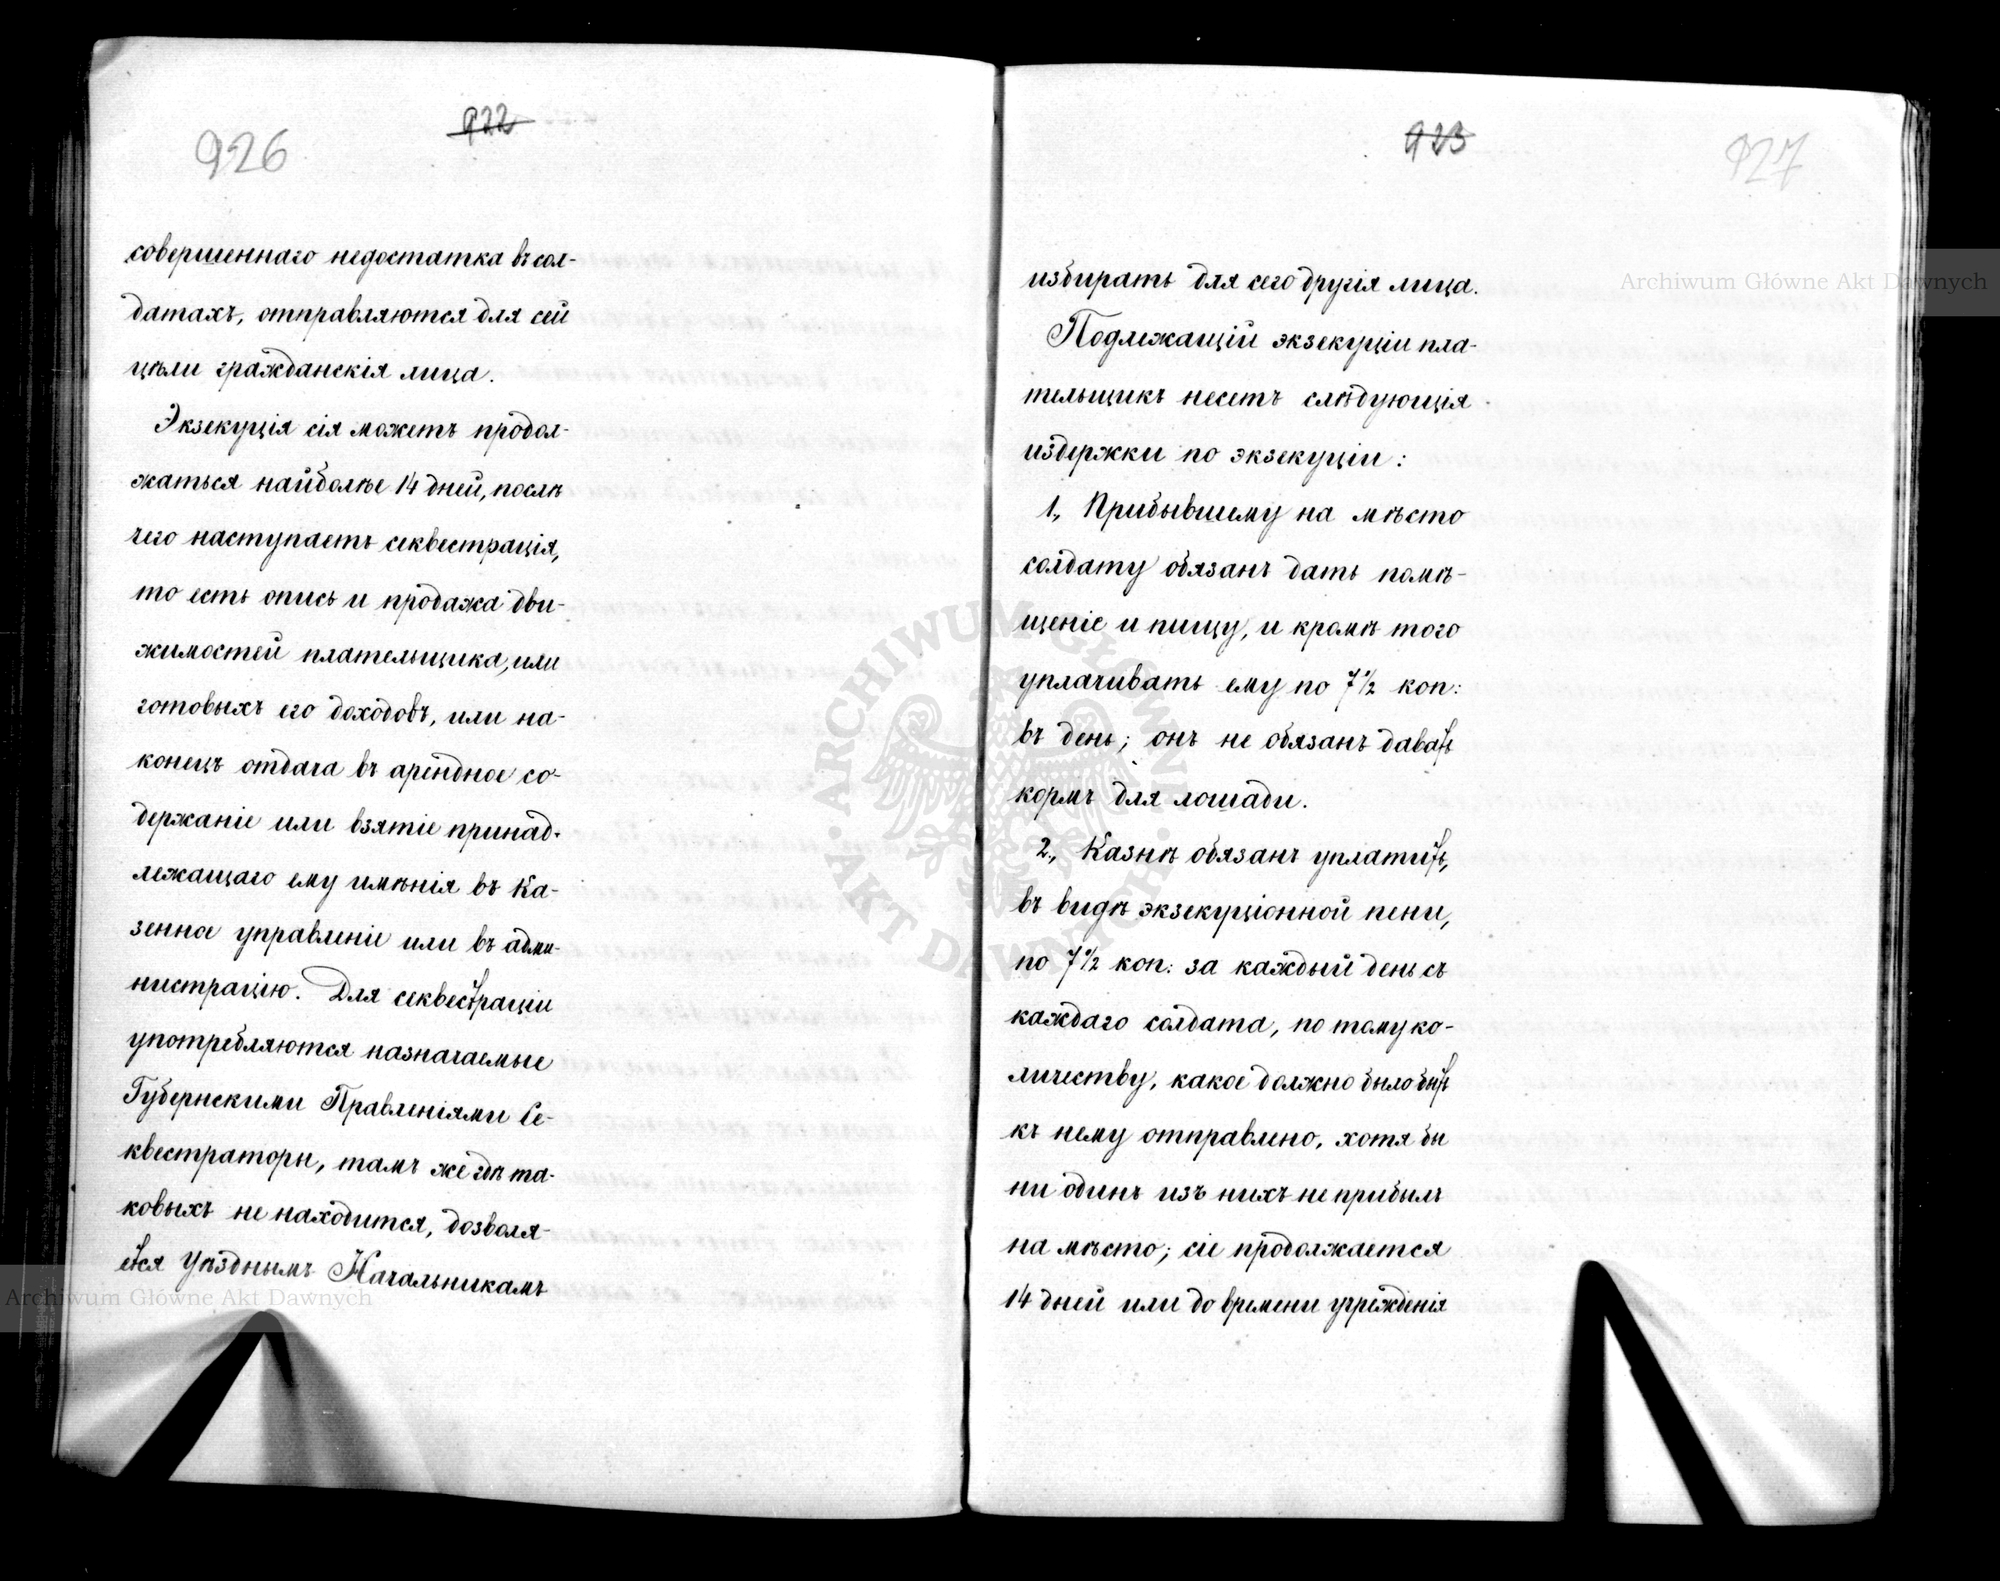 926
922
совершеннаго недостатка въ сол-
датахъ, отправляются для сей
цѣли гражданскія лица.
Экзекуція сія можетъ продол-
жаться наиболѣе 14 дней, послѣ
чего наступаетъ секвестрація,
то есть опись и продажа дви-
жимостей плательщика, или
готовыхъ его доходовъ, или на-
конецъ отдача въ арендное со-
держаніе или взятіе принад-
лежащаго ему имѣнія въ Ка-
зенное управленіе или въ адми-
нистрацію. Для секвестраціи
употребляются назначаемые
Губернскими Правленіями Се-
квестраторы, тамъ же гдѣ та-
ковыхъ не находится, дозволя-
ется Уѣзднымъ Начальникамъ
923
927
избирать для сего другія лица.
Подлежащій экзекуціи пла-
тельщикъ несетъ слѣдующія
издержки по экзекуціи:
1., Прибывшему на мѣсто
солдату обязанъ дать помѣ-
щеніе и пищу, и кромѣ того
уплачивать ему по 7½ коп:
въ день; онъ не обязанъ давать
кормъ для лошади.
2., Казнѣ обязанъ уплатить,
въ видѣ экзекуціонной пени,
по 7½ коп: за каждый день съ
каждаго солдата, по тому ко-
личеству, какое должно было быть
къ нему отправлено, хотя бы
ни одинъ изъ нихъ не прибылъ
на мѣсто; сіе продолжается
14 дней или до времени учрежденія
Archiwum Główne Akt Dawnych
Archiwum Główne Akt Dawnych
ARCHIWUM GŁÓWNE AKT DAWNYCH